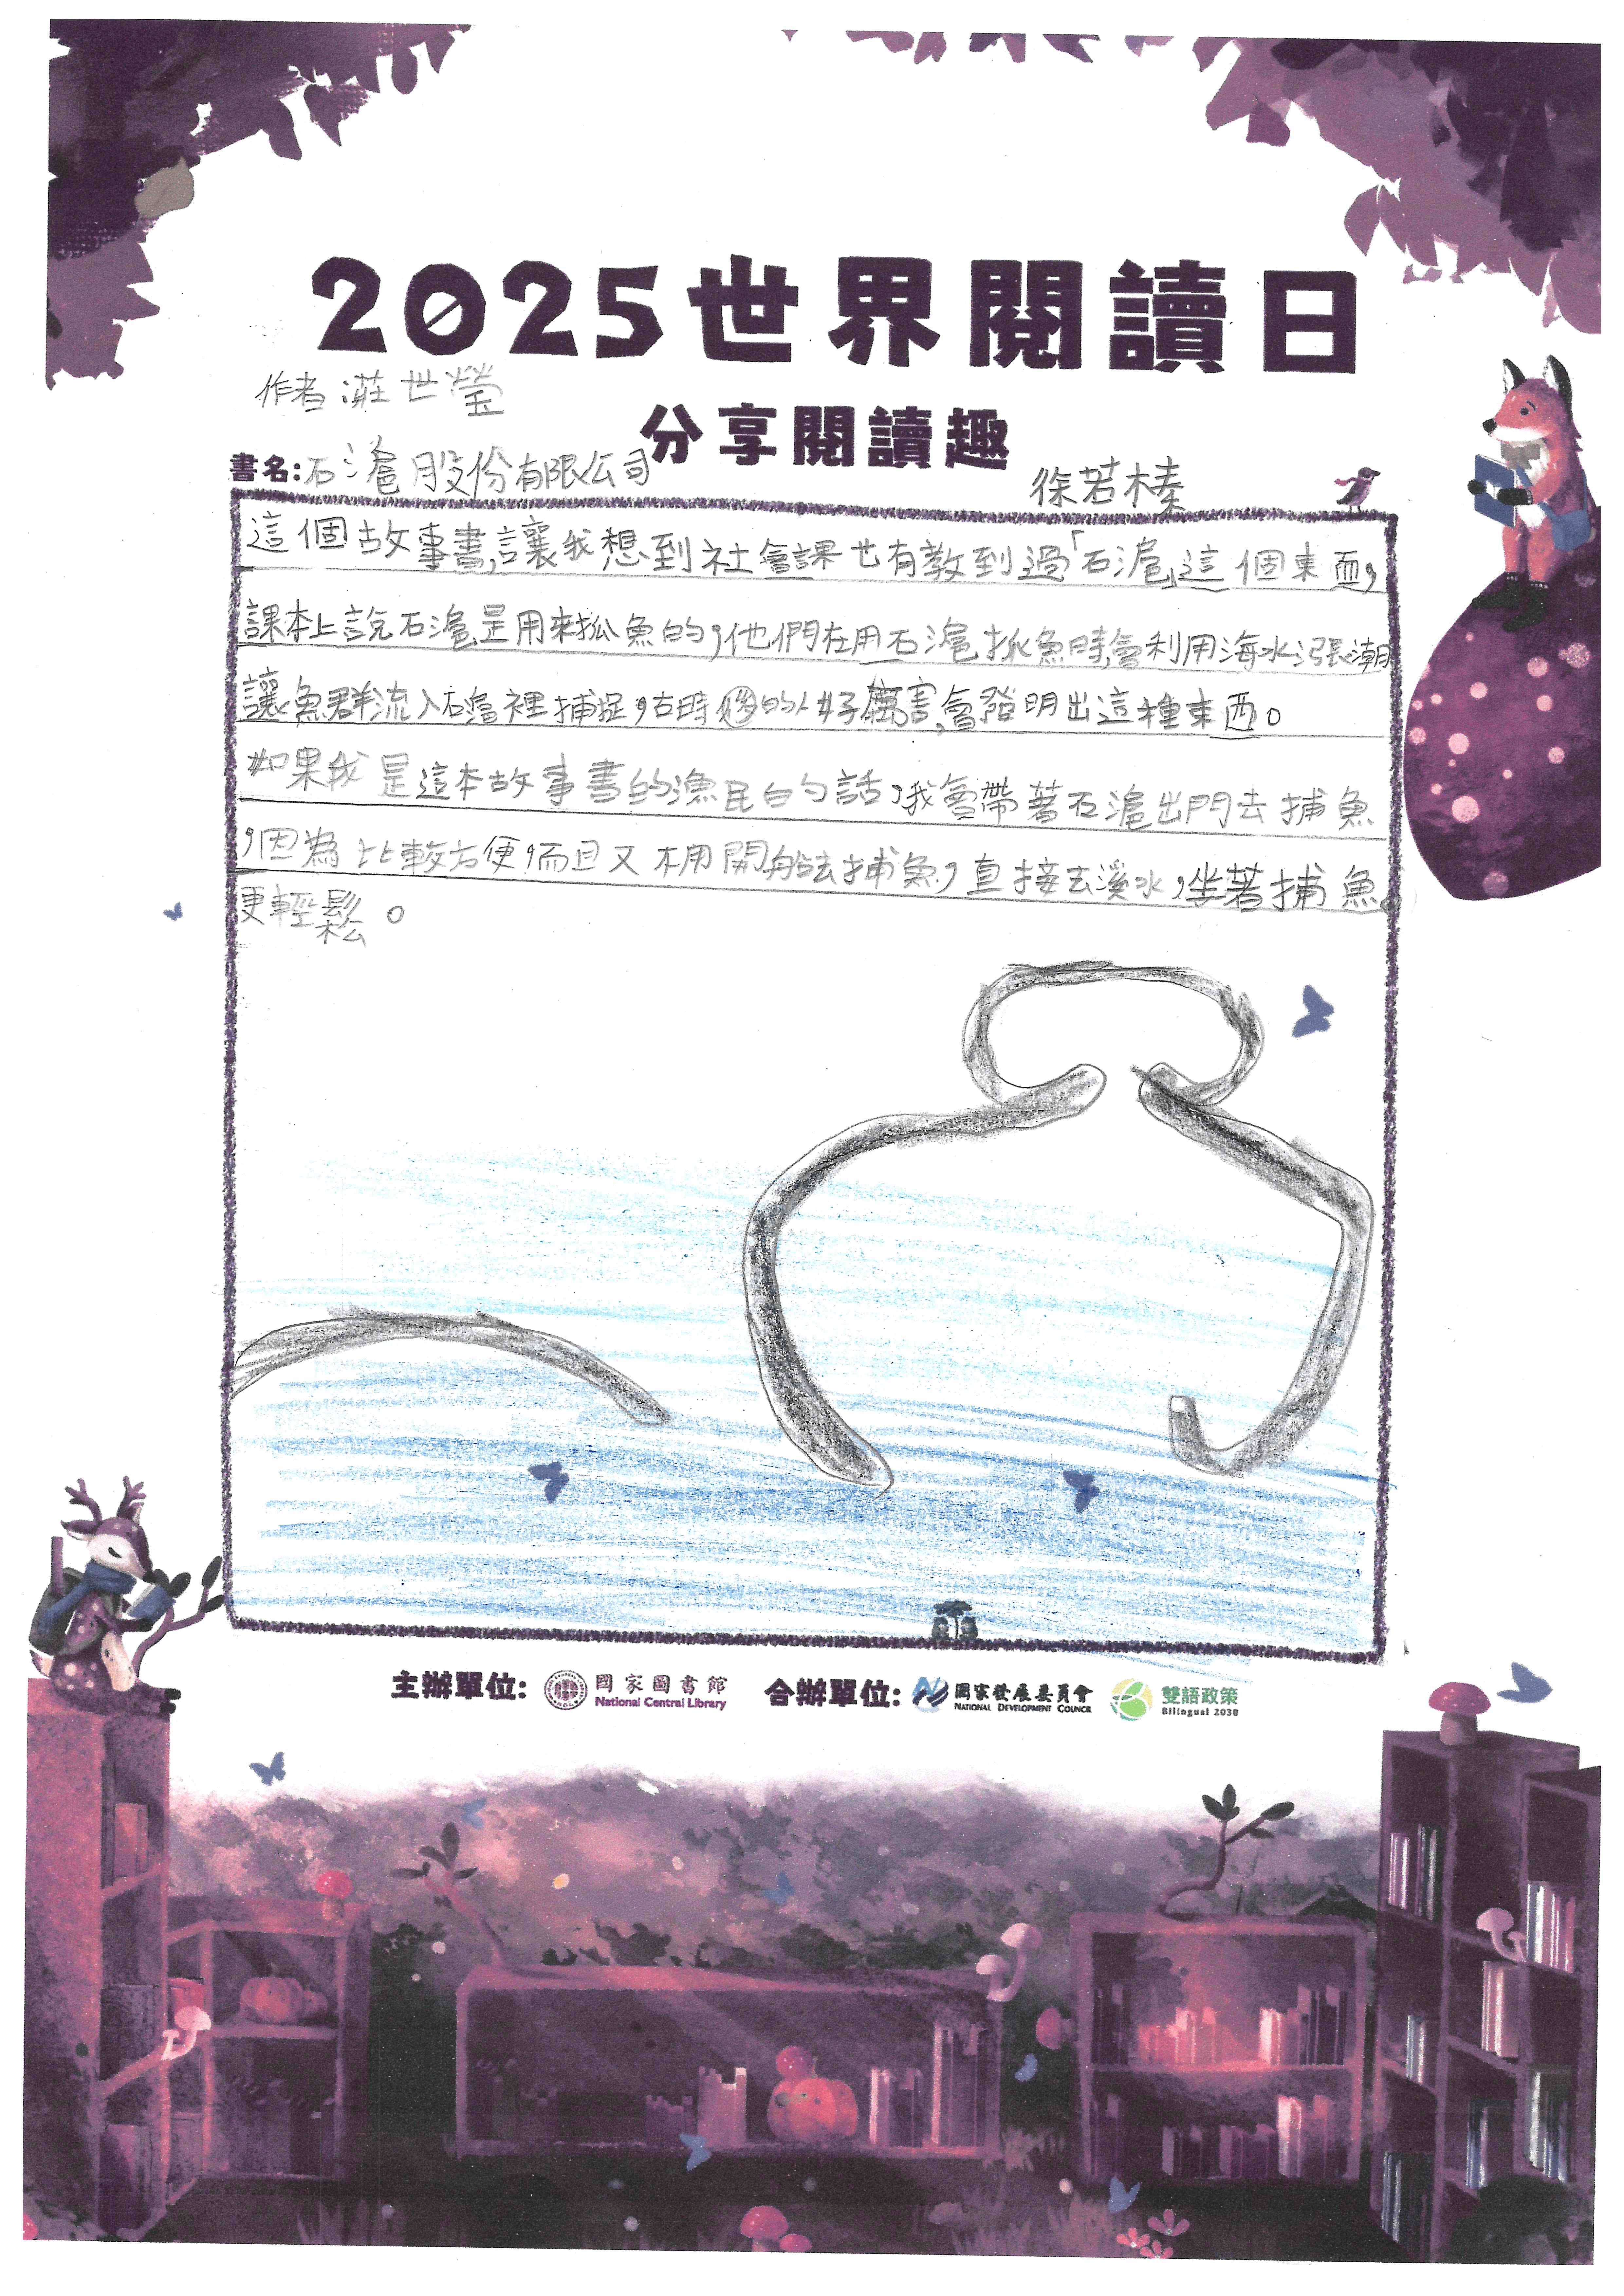 2025世界閱讀日
作者:莊世瑩
分享閱讀趣
書名:石滬股份有限公司
徐若榛
這個故事書,讓我想到社會課也有教到過「石滬」這個東西,
課本上說石滬是用來抓魚的,他們在用石滬抓魚時,會利用海水漲潮
讓魚群流入石滬裡捕捉,古時的人好厲害,會發明出這種東西。
如果我是這本故事書的漁民白勺話,我會帶著石滬出門去捕魚
,因為比較方便,而且又不用開船去捕魚,直接去溪水,坐著捕魚。
更輕鬆。
主辦單位:
國家圖書館
National Central Library
合辦單位:
國家發展委員會
NATIONAL DEVELOPMENT COUNCIL
雙語政策
Bilingual 2030